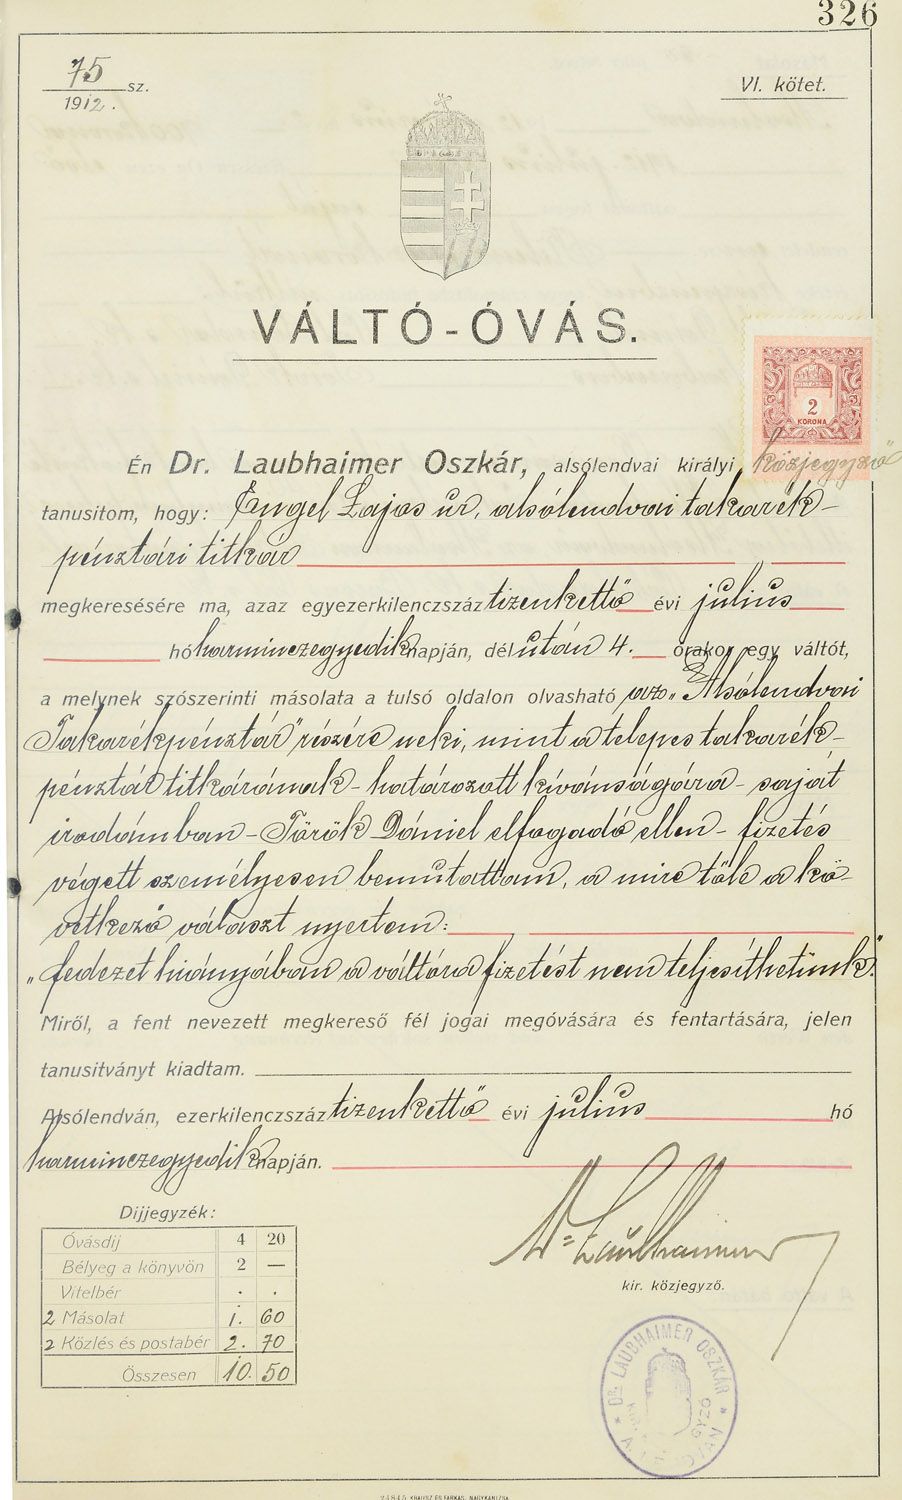 326
75 sz.
1912.
VI. kötet.
VÁLTÓ-ÓVÁS.
2
KORONA
Én Dr. Laubhaimer Oszkár, alsólendvai királyi közjegyző
tanusitom, hogy: Engel Lajos úr, alsólendvai takarék-
pénztári titkár
megkeresésére ma, azaz egyezerkilenczszáz tizenkettő évi július
hó harminczegyedik napján, dél után 4. órakor egy váltót,
a melynek szószerinti másolata a tulsó oldalon olvasható az „Alsólendvai
Takarékpénztár" részére neki, mint a telepes takarék-
pénztár titkárának - határozott kívánságára - saját
irodámban - Török Dániel elfogadó ellen - fizetés
végett személyesen bemutattam, a mire tőle a kö-
vetkező választ nyertem:
„fedezet hiányában a váltóra fizetést nem teljesíthetünk."
Miről, a fent nevezett megkereső fél jogai megóvására és fentartására, jelen
tanusitványt kiadtam.
Alsólendván, ezerkilenczszáz tizenkettő évi július hó
harminczegyedik napján.
Dijjegyzék:
Óvásdij 4 20
Bélyeg a könyvön 2 —
Vitelbér . .
2 Másolat 1. 60
2 Közlés és postabér 2. 70
Összesen 10. 50
Dr. Laubhaimer
kir. közjegyző.
DR. LAUBHAIMER OSZKÁR
24845 KRAUSZ ÉS FARKAS, NAGYKANIZSA